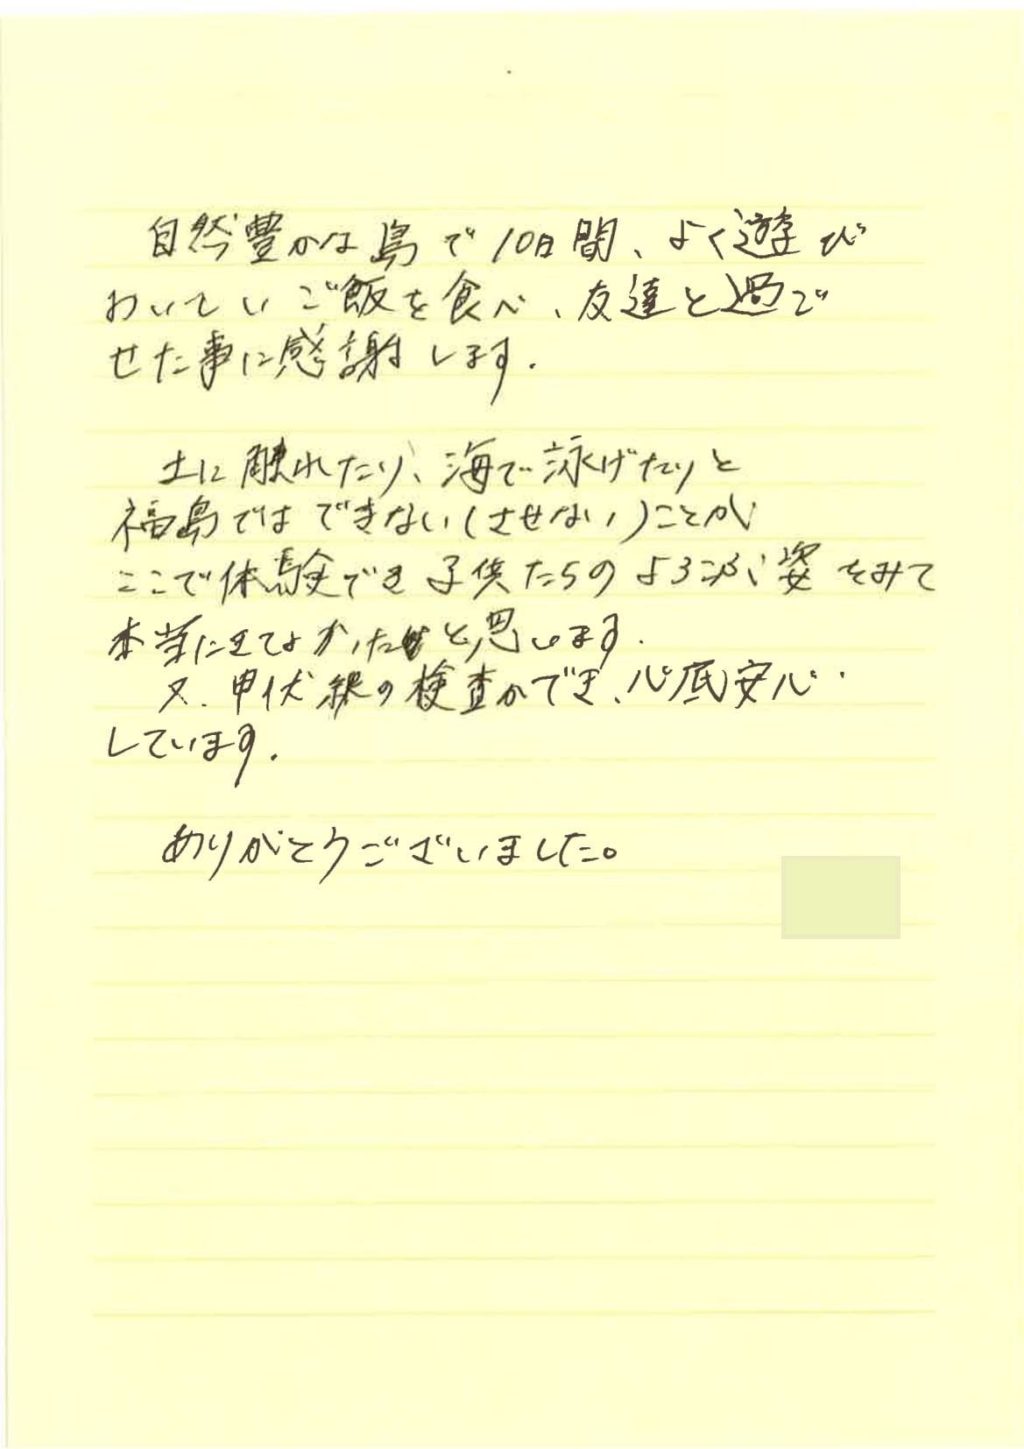 自然豊かな島で10日間、よく遊び
おいしいご飯を食べ、友達と過ご
せた事に感謝します.
土に触れたり、海で泳げたりと
福島ではできない(させない)ことが
ここで体験でき子供たちのよろこぶ姿をみて
本当にきてよかったと思います.
又、甲状線の検査ができ、心底安心
しています.
ありがとうございました。